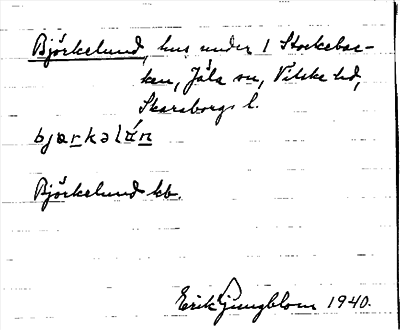 Björkelund, hus under 1 Stockebac-
ken, Jäla sn, Vilske hd,
Skaraborgs l.
bjərkəlán
Björkelund kb.
Erik Ljungblom 1940.